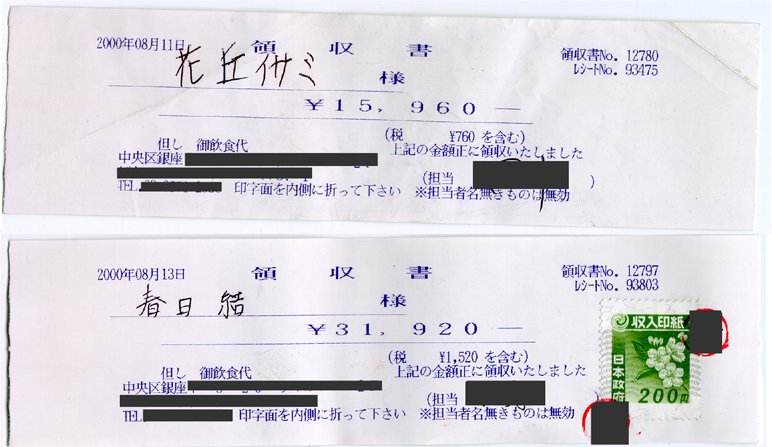 2000年08月11日 領収書 領収書No. 12780
レシートNo. 93475
花丘イサミ 様
¥15,960—
(税 ¥760 を含む)
但し 御飲食代 上記の金額正に領収いたしました
中央区銀座
(担当 )
TEL. 印字面を内側に折って下さい ※担当者名無きものは無効
2000年08月13日 領収書 領収書No. 12797
レシートNo. 93803
春日 結 様
¥31,920—
収入印紙
日本政府
200円
(税 ¥1,520 を含む)
但し 御飲食代 上記の金額正に領収いたしました
中央区銀座
(担当 )
TEL 印字面を内側に折って下さい ※担当者名無きものは無効